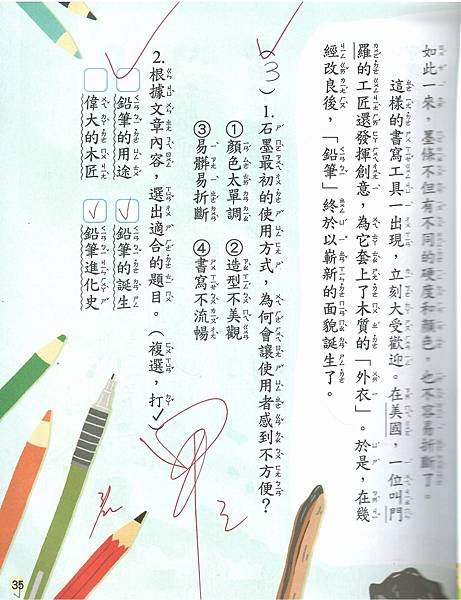 如此一來，墨條不但有不同的硬度和顏色，也不容易折斷了。
這樣的書寫工具一出現，立刻大受歡迎。在美國，一位叫門
羅的工匠還發揮創意，為它套上了木質的「外衣」。於是，在幾
經改良後，「鉛筆」終於以嶄新的面貌誕生了。
（3）1.石墨最初的使用方式，為何會讓使用者感到不方便？
①顏色太單調 ②造型不美觀
③易髒易折斷 ④書寫不流暢
2.根據文章內容，選出適合的題目。（複選，打✓）
鉛筆的用途 ✓鉛筆的誕生
偉大的木匠 ✓鉛筆進化史
35